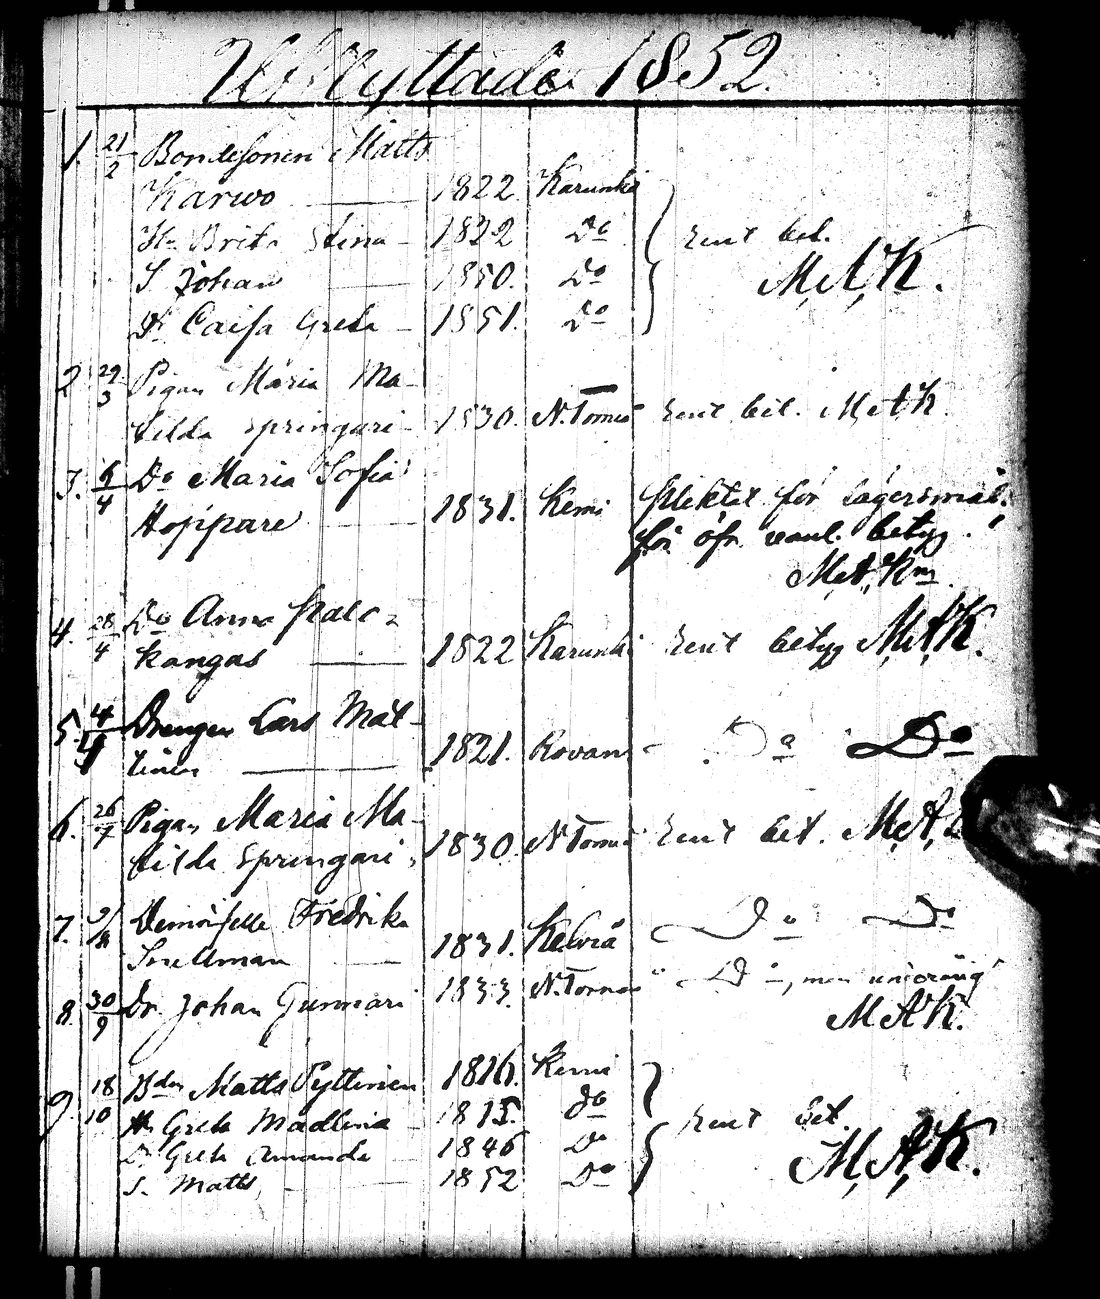 Utflyttade 1852.
1. 21/2 Bondesonen Matts
Karwo 1822 Karunki
H. Brita Stina 1822 Do rent bet.
S. Johan 1850. Do M.A.K.
Dr Caisa Greta 1851. Do
2 29/3 Pigan Maria Ma-
tilda Springari 1830. N.Torneå rent bet. M.A.K.
3. 6/4 Do Maria Sofia
Hoppare 1831. Kemi för lägersmål,
för öfr. vanl. betyg.
M.A.Km.
4. 28/4 Do Anna
kangas 1822 Karunki rent betyg M.A.K.
5. 4/4 Drengen Lars Mat-
tinen 1821. Rovan- Do Do
6. 26/7 Pigan Maria Ma-
tilda Springari, 1830. N.Torneå rent bet. M.A.
7. Demoiselle Fredrika Do Do
Snellman 1831. Kelviå
8. 30/9 Dr. Johan Gunnari 1833. N.Torneå Do, men
M.A.K.
9. 18/10 Bdn Matts Pyttinen 1816. Kemi
H. Greta Madlina 1815. do rent bet.
Dr Greta Amanda 1846 Do M.A.K.
S. Matts 1852 Do